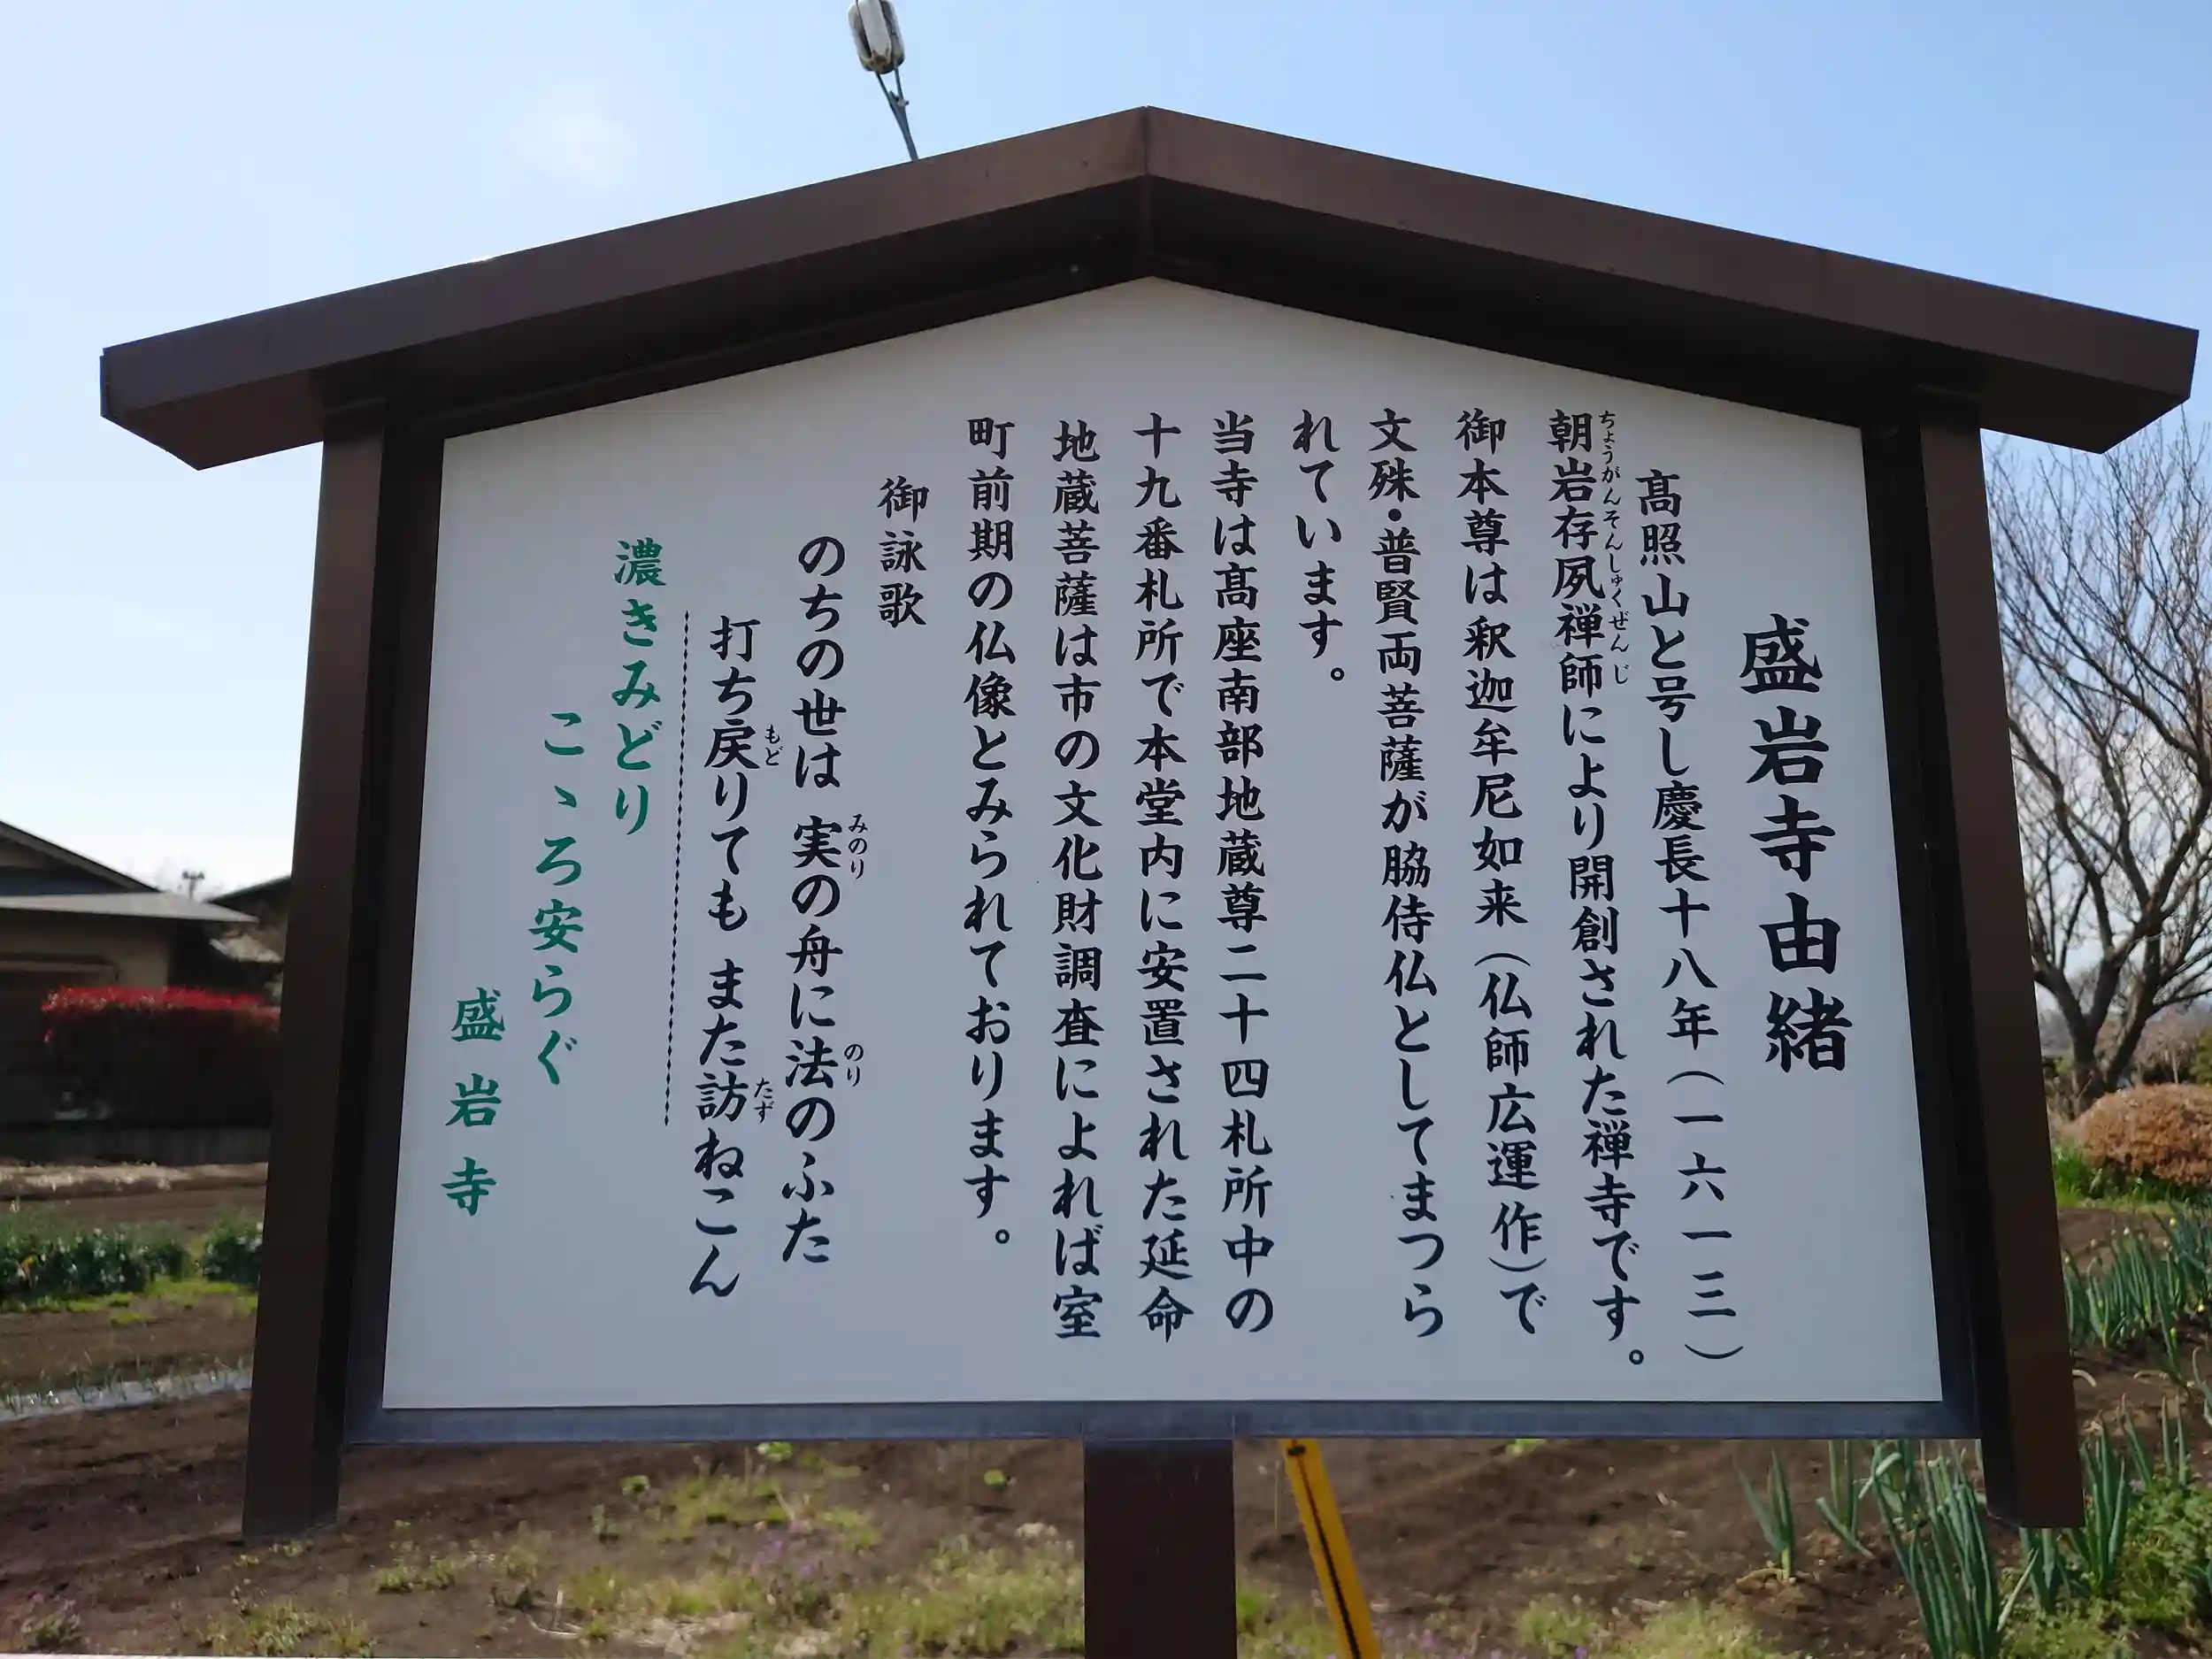 盛岩寺由緒
髙照山と号し慶長十八年(一六一三)
朝岩存夙禅師により開創された禅寺です。
ちょうがんそんしゅくぜんじ
御本尊は釈迦牟尼如来(仏師広運作)で
文殊・普賢両菩薩が脇侍仏としてまつら
れています。
当寺は髙座南部地蔵尊二十四札所中の
十九番札所で本堂内に安置された延命
地蔵菩薩は市の文化財調査によれば室
町前期の仏像とみられております。
御詠歌
のちの世は 実の舟に法のふた
みのり のり
打ち戻りても また訪ねこん
もど たず
濃きみどり
こゝろ安らぐ
盛岩寺